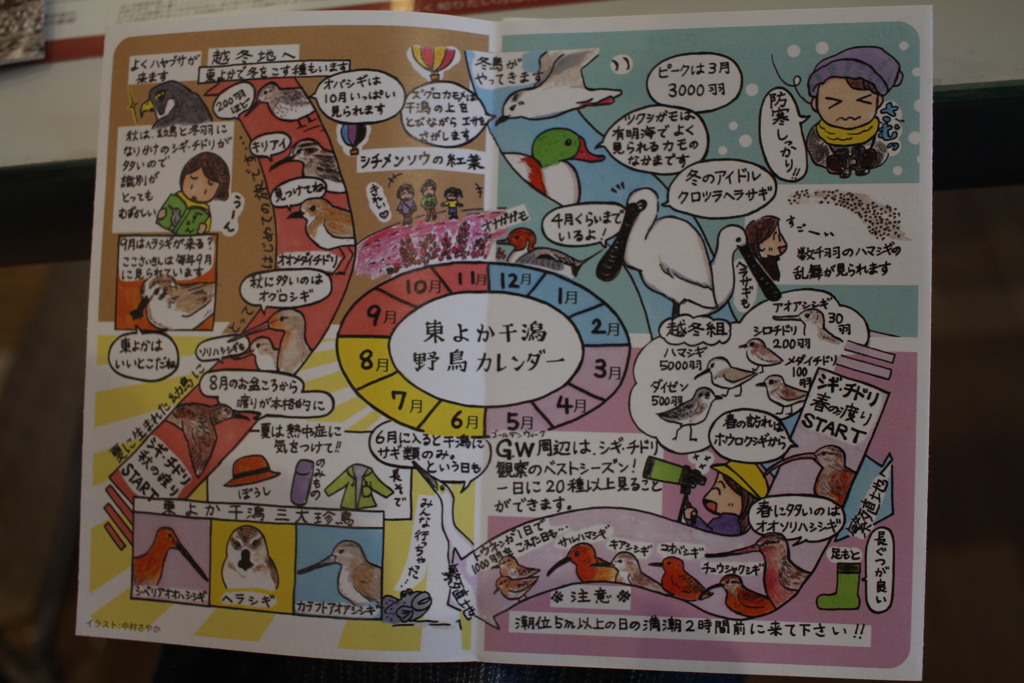 く知りたい
よくハヤブサが
来ます
越冬地へ
東よかで冬をこす種もいます
200羽
ほど
オバシギは
10月いっぱい
見られます
ズグロカモメは
干潟の上を
とびながらエサを
さがします
秋は、幼鳥と冬羽に
なりかけのシギ・チドリが
多いので
識別が
とっても
むずかしい
うーん
キリアイ
見つけてね
はじめての旅です
オオメダイチドリ
シチメンソウの紅葉
きれい
9月はヘラシギが来る?
ここさいきんは毎年9月
に見られています
東よかは
いいとこだね
秋に多いのは
オグロシギ
ソリハシシギも
8月のお盆ころから
渡りが本格的に
夏に生まれた幼鳥に
シギ・チドリ
秋の渡り
START
夏は熱中症に
気をつけて!!
ぼうし
のみもの
長そで
6月に入ると干潟に
サギ類のみ。
という日も
みんな行っちゃた…
東よか干潟三大珍鳥
シベリアオオハシシギ
ヘラシギ
カラフトアオアシシギ
イラスト:中村さやか
冬鳥が
やってきます
ピークは3月
3000羽
ツクシガモは
有明海でよく
見られるカモの
なかまです
防寒しっかり!!
さむっ
冬のアイドル
クロツラヘラサギ
4月くらいまで
いるよ!
オナガガモ
ヘラサギも
すごーい
数千羽のハマシギの
乱舞が見られます
12月
1月
2月
3月
4月
5月
6月
7月
8月
9月
10月
11月
東よか干潟
野鳥カレンダー
越冬組
アオアシシギ
30羽
シロチドリ
200羽
メダイチドリ
100羽
ハマシギ
5000羽
ダイゼン
500羽
シギ・チドリ
春の渡り
START
春の訪れは
ホウロクシギから
ゴールデンウィーク
G.W周辺は、シギ・チドリ
観察のベストシーズン!
一日に20種以上見ること
ができます。
春に多いのは
オオソリハシシギ
繁殖地へ
トウネンが1日で
1000羽をこえた日も…
サルハマシギ
キアシシギ
コオバシギ
チュウシャクシギ
足もと
長ぐつが良い
※注意※
潮位5m以上の日の満潮2時間前に来て下さい!!